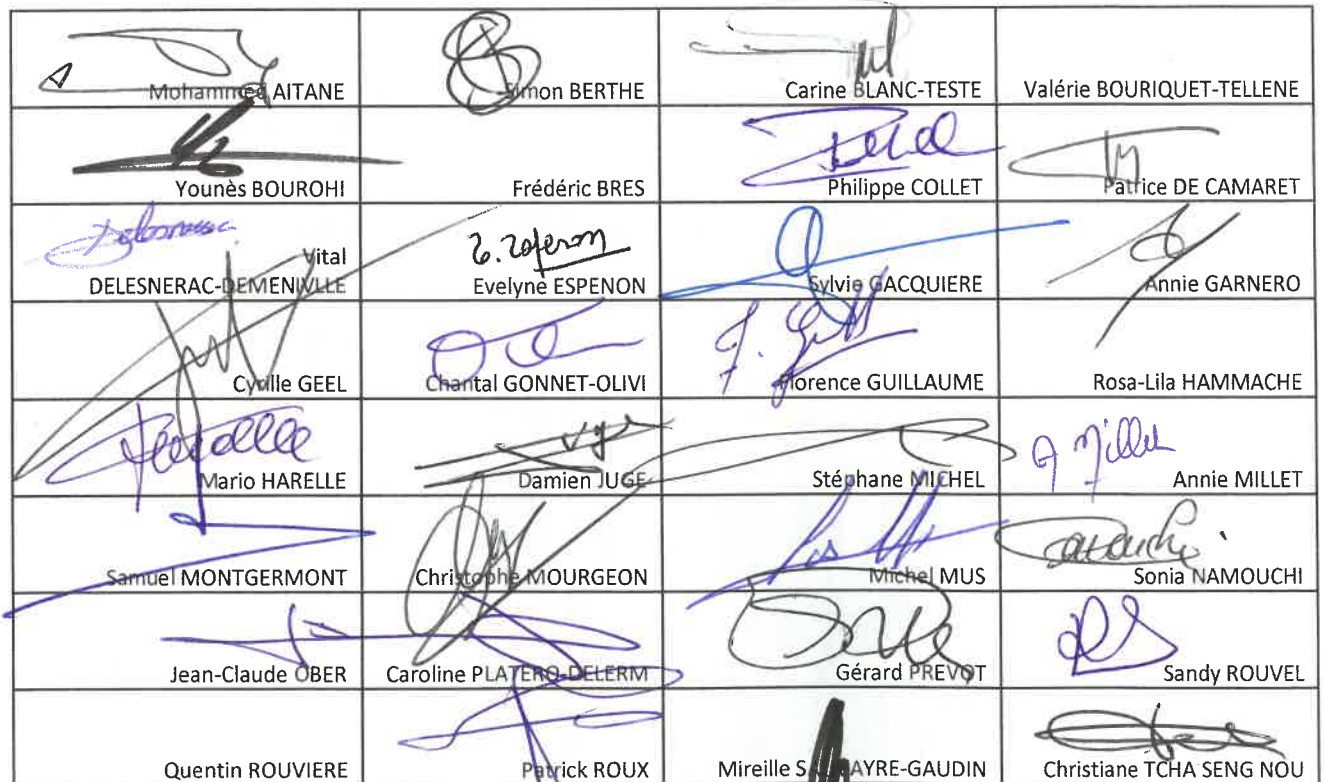 Mohammed AITANE
Simon BERTHE
Carine BLANC-TESTE
Valérie BOURIQUET-TELLENE
Younès BOUROHI
Frédéric BRES
Philippe COLLET
Patrice DE CAMARET
Vital
DELESNERAC-DEMENIVLLE
Evelyne ESPENON
Sylvie GACQUIERE
Annie GARNERO
Cyrille GEEL
Chantal GONNET-OLIVI
Florence GUILLAUME
Rosa-Lila HAMMACHE
Mario HARELLE
Damien JUGE
Stéphane MICHEL
A Millet
Annie MILLET
Samuel MONTGERMONT
Christophe MOURGEON
Michel MUS
Sonia NAMOUCHI
Jean-Claude OBER
Caroline PLATERO-DELERM
Gérard PREVOT
Sandy ROUVEL
Quentin ROUVIERE
Patrick ROUX
Mireille AYRE-GAUDIN
Christiane TCHA SENG NOU